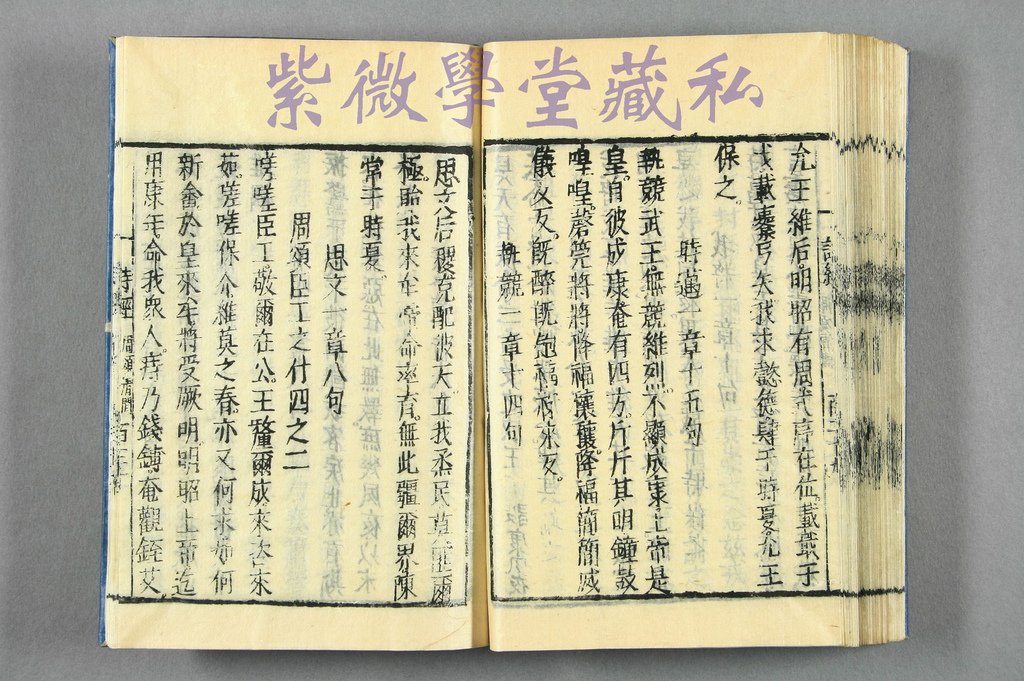 紫微學堂藏私
允王維后明昭有周式序在位載戢干
戈載櫜弓矢我求懿德肆于時夏允王
保之
時邁一章十五句
執競武王無競維烈不顯成康上帝是
皇自彼成康奄有四方斤斤其明鐘鼓
喤喤磬筦將將降福穰穰降福簡簡威
儀反反旣醉旣飽福祿來反
執競一章十四句
思文后稷克配彼天立我烝民莫匪爾
極貽我來牟帝命率育無此疆爾界陳
常于時夏
思文一章八句
周頌臣工之什四之二
嗟嗟臣工敬爾在公王釐爾成來咨來
茹嗟嗟保介維莫之春亦又何求如何
新畬於皇來牟將受厥明明昭上帝迄
用康年命我衆人庤乃錢鎛奄觀銍艾
詩經 周頌清閟